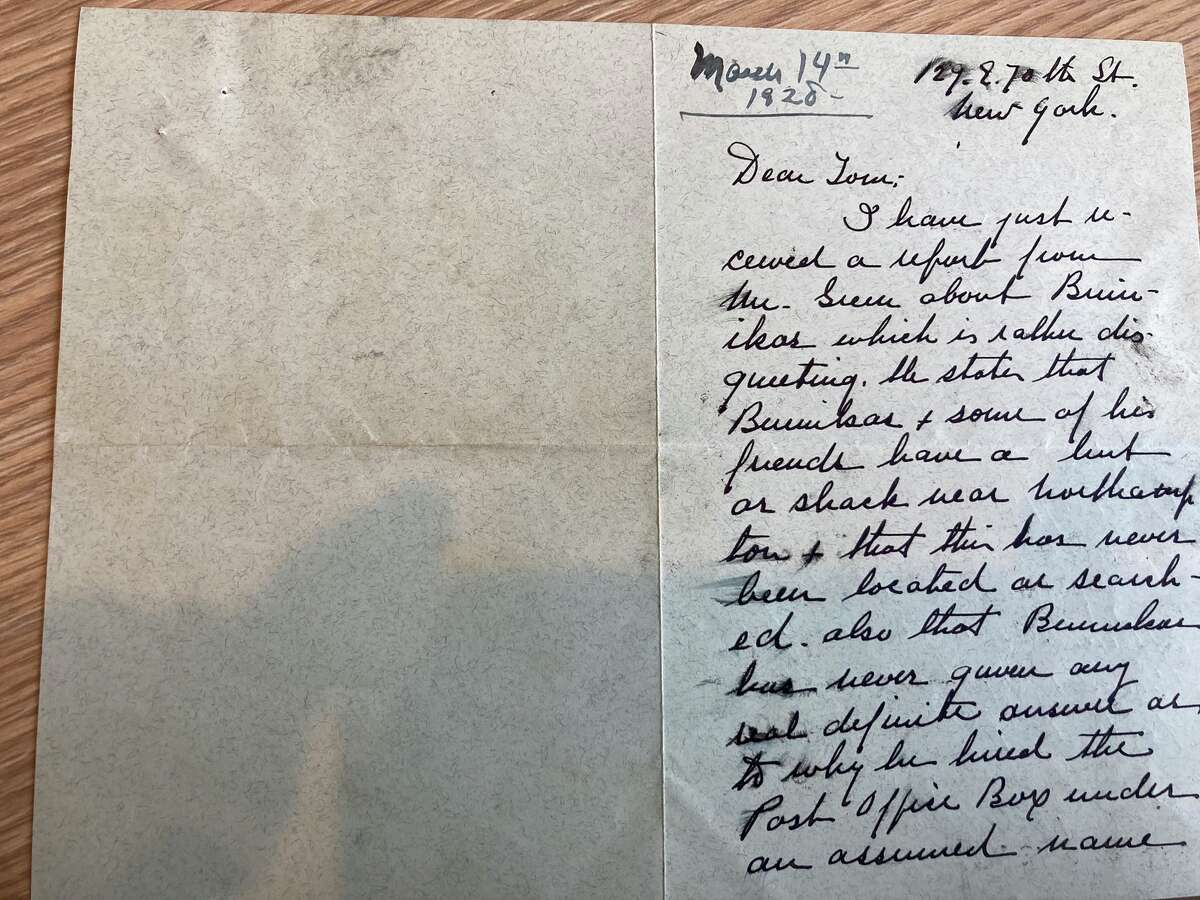 March 14th
1928-
129. E. 70th St.
New York.
Dear Tom;-
I have just re-
ceived a report from
Mr. Green about
which is rather dis-
quieting. He states that
+ some of his
friends have a hut
or shack near Northamp
ton + that this has never
been located or search-
ed. also that
has never given any
real definite answer as
to why he hired the
Post Office Box under
an assumed name